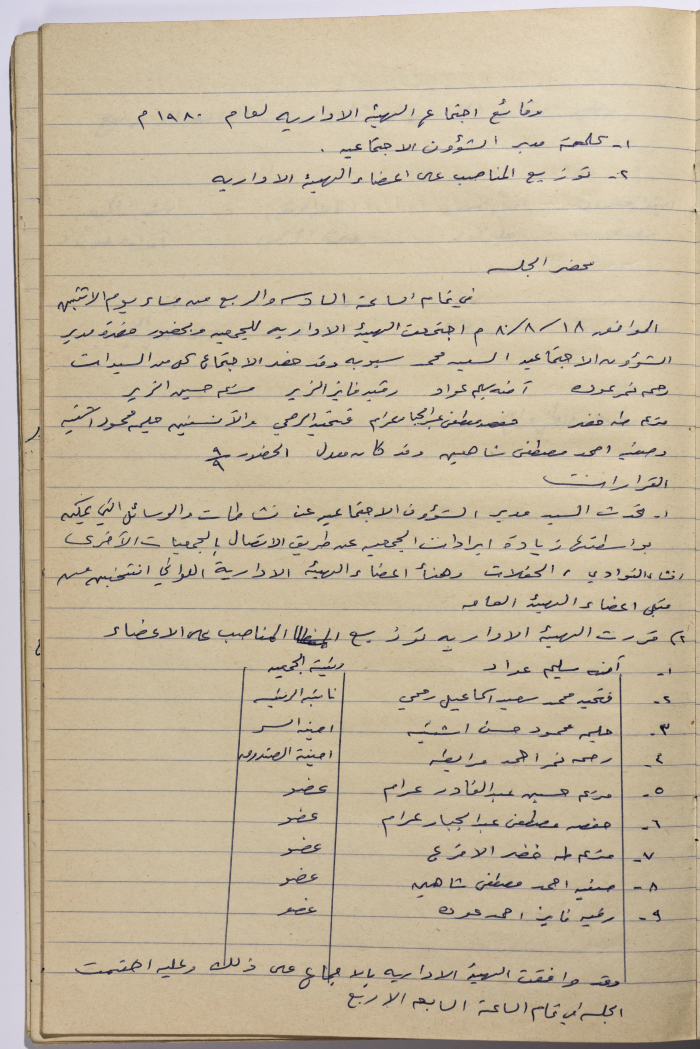 وقائع اجتماع الهيئة الاداريه لعام ١٩٨٠م
١- كلمة مدير الشؤون الاجتماعيه .
٢- توزيع المناصب على اعضاء الهيئة الاداريه
محضر الجلسه
في تمام الساعة السادسه والربع من مساء يوم الاثنين
الموافق ١٨/٨/٨٠ م اجتمعت الهيئة الاداريه للجمعيه وبحضور حضرة مدير
الشؤون الاجتماعيه السيد محمد وقد حضر الاجتماع كل من السيدات
رحمه نمر عوده آمنه سليم عواد رقيه فايز الزير مريم حسين الزير
مريم طه خضر حفصه مصطفى عبد الجبار عرام فتحيه الرمحي والآنستين حليمه محمود اشتيه
وصفيه احمد مصطفى شاهين وقد كان معدل الحضور ٩/٩
القرارات
١- تحدث السيد مدير الشؤون الاجتماعيه عن نشاطات والوسائل التي يمكن
بواسطتها زيادة ايرادات الجمعيه عن طريق الاتصال بالجمعيات الأخرى
انشاء النوادي ، الحفلات وهنأ اعضاء الهيئة الادارية اللواتي انتخبن من
قبل اعضاء الهيئة العامه
٢) قررت الهيئة الاداريه توزيع المناصب على الاعضاء
١- آمنه سليم عواد رئيسة الجمعيه
٢- فتحيه محمد سعيد اسماعيل رمحي نائبة الرئيسه
٣- حليمه محمود حسن اشتيه امينة السر
٤- رحمه نمر احمد مرابطه امينة الصندوق
٥- مريم حسين عبد القادر عرام عضو
٦- حفصه مصطفى عبد الجبار عرام عضو
٧- مريم طه خضر الاقرع عضو
٨- صفيه احمد مصطفى شاهين عضو
٩- رقيه فايز احمد عوده عضو
وقد وافقت الهيئة الاداريه بالاجماع على ذلك وعليه اختتمت
الجلسه في تمام الساعة السابعه الا ربع